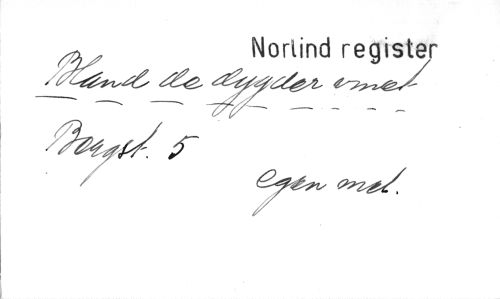 Norlind register
Bland de dygder omet
Bergst. 5
egen mel.